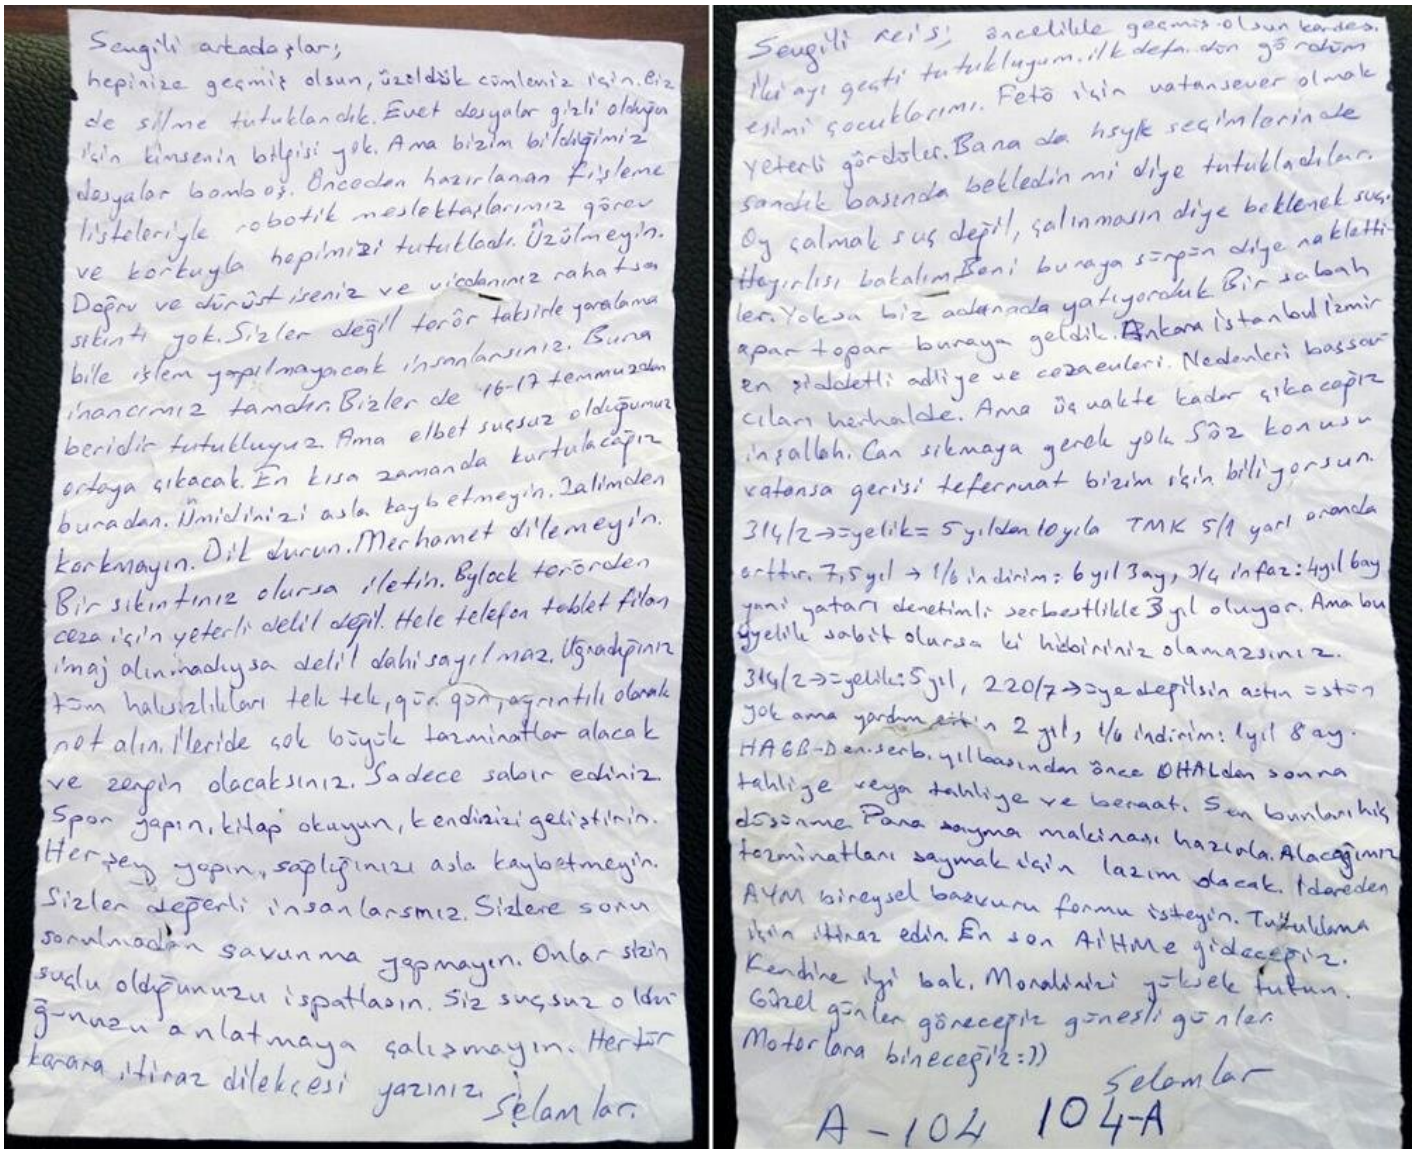 Sevgili arkadaşlar;
hepinize geçmiş olsun, üzüldük cümleniz için. Biz
de silme tutuklandık. Evet dosyalar gizli olduğu
için kimsenin bilgisi yok. Ama bizim bildiğimiz
dosyalar bomboş. Önceden hazırlanan fişleme
listeleriyle robotik meslektaşlarımız görev
ve korkuyla hepimizi tutukladı. Üzülmeyin.
Doğru ve dürüst iseniz ve vicdanınız rahatsa
sıkıntı yok. Sizler değil terör taksirle yaralama
bile işlem yapılmayacak insanlarsınız. Buna
inancımız tamdır. Bizler de 16-17 temmuzdan
beridir tutukluyuz. Ama elbet suçsuz olduğumuz
ortaya çıkacak. En kısa zamanda kurtulacağız
buradan. Ümidinizi asla kaybetmeyin. Zalimden
korkmayın. Dik durun. Merhamet dilemeyin.
Bir sıkıntınız olursa iletin. Bylock terörden
ceza için yeterli delil değil. Hele telefon tablet filan
imaj alınmadıysa delil dahi sayılmaz. Uğradığınız
tüm haksızlıkları tek tek, gün gün, ayrıntılı olarak
not alın. İleride çok büyük tazminatlar alacak
ve zengin olacaksınız. Sadece sabır ediniz
Spor yapın, kitap okuyun, kendinizi geliştirin.
Her şey yapın, sağlığınızı asla kaybetmeyin.
Sizler değerli insanlarsınız. Sizlere soru
sorulmadan savunma yapmayın. Onlar sizin
suçlu olduğunuzu ispatlasın. Siz suçsuz oldu-
ğunuzu anlatmaya çalışmayın. Her tür
karara itiraz dilekçesi yazınız.
Selamlar.
Sevgili reis; öncelikle geçmiş olsun kardeş.
İki ayı geçti tutukluyum. ilk defa dün gördüm
eşimi çocuklarımı. Fetö için vatansever olmak
yeterli gördüler. Bana da hsyk seçimlerinde
sandık başında bekledin mi diye tutukladılar.
Oy çalmak suç değil, çalınmasın diye beklemek suç.
Hayırlısı bakalım. Beni buraya sürgün diye naklettti-
ler. Yoksa biz adanada yatıyorduk. Bir sabah
apar topar buraya geldik. Ankara istanbul izmir
en şiddetli adliye ve cezaevleri. Nedenleri başsav-
cıları herhalde. Ama üç vakte kadar çıkacağız
inşallah. Can sıkmaya gerek yok. Söz konusu
vatansa gerisi teferruat bizim için biliyorsun.
314/2→üyelik= 5 yıldan 10 yıla TMK 5/1 yarı oranda
arttır. 7,5 yıl → 1/6 indirim: 6 yıl 3 ay, 3/4 infaz: 4 yıl 6 ay
yani yatarı denetimli serbestlikle 3 yıl oluyor. Ama bu
üyelik sabit olursa ki hiçbiriniz olamazsınız.
314/2→üyelik: 5 yıl, 220/7→üye değilsin astın üstün
yok ama yardım ettin 2 yıl, 1/6 indirim: 1 yıl 8 ay.
HAGB-Den.serb. yılbaşından önce OHALden sonra
tahliye veya tahliye ve beraat. Sen bunları hiç
düşünme. Para sayma makinası hazırla. Alacağımız
tazminatları saymak için lazım olacak. İdareden
AYM bireysel başvuru formu isteyin. Tutuklama
için itiraz edin. En son AİHMe gideceğiz.
Kendine iyi bak. Moralinizi yüksek tutun.
Güzel günler göreceğiz güneşli günler.
Motorlara bineceğiz:))
Selamlar
A-104 104-A